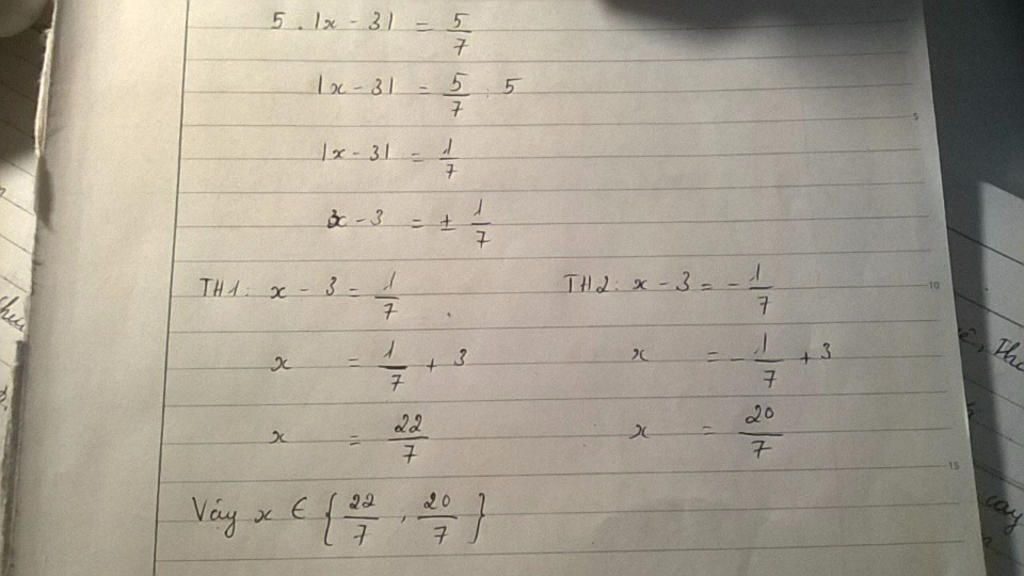 5 . |x - 3| = 5/7
|x - 3| = 5/7 : 5
|x - 3| = 1/7
x - 3 = ± 1/7
TH1: x - 3 = 1/7
x = 1/7 + 3
x = 22/7
TH2: x - 3 = - 1/7
x = - 1/7 + 3
x = 20/7
Vậy x ∈ { 22/7 , 20/7 }
5
10
15